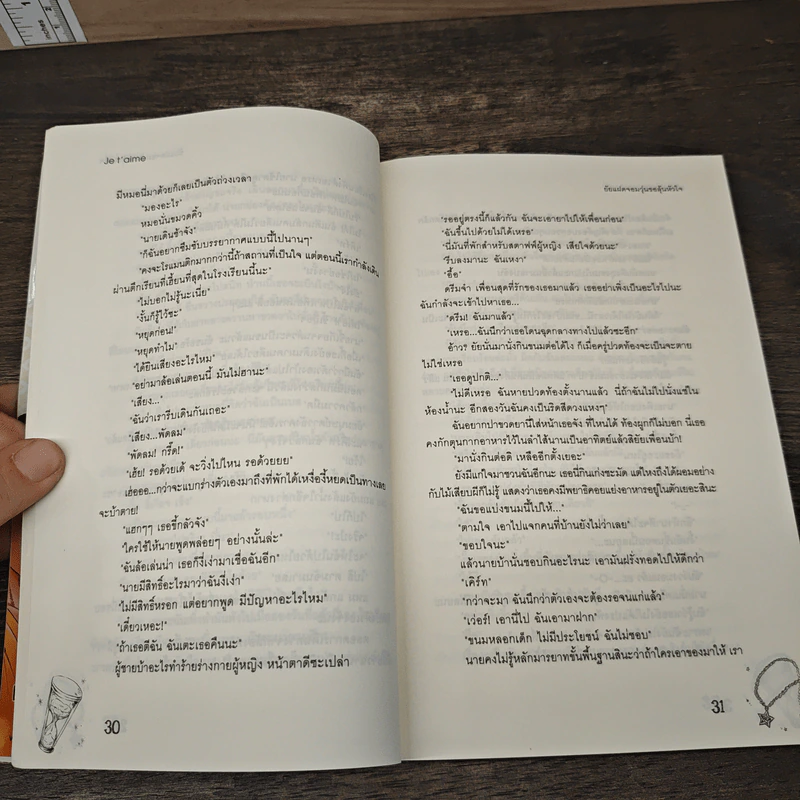 Je t'aime
มีหมอนี่มาด้วยก็เลยเป็นตัวถ่วงเวลา
"มองอะไร"
หมอนั่นขมวดคิ้ว
"นายเดินช้าจัง"
"ก็ฉันอยากซึมซับบรรยากาศแบบนี้ไปนานๆ"
"คงจะโรแมนติกมากกว่านี้ถ้าสถานที่เป็นใจ แต่ตอนนี้เรากำลังเดิน
ผ่านตึกเรียนที่เฮี้ยนที่สุดในโรงเรียนนี้นะ"
"ไม่บอกไม่รู้นะเนี่ย"
"งั้นก็รู้ไว้ซะ"
"หยุดก่อน!"
"หยุดทำไม"
"ได้ยินเสียงอะไรไหม"
"อย่ามาล้อเล่นตอนนี้ มันไม่ฮานะ"
"เสียง..."
"ฉันว่าเรารีบเดินกันเถอะ"
"เสียง...พัดลม"
"พัดลม! กรี๊ด!"
"เฮ้ย! รอด้วยเด้ จะวิ่งไปไหน รอด้วยยย"
เฮ้อออ...กว่าจะแบกร่างตัวเองมาถึงที่พักได้เหงื่องี้หยดเป็นทางเลย
จะบ้าตาย!
"แฮกๆๆ เธอขี้กลัวจัง"
"ใครใช้ให้นายพูดพล่อยๆ อย่างนั้นล่ะ"
"ฉันล้อเล่นน่า เธอก็งี่เง่ามาเชื่อฉันอีก"
"นายมีสิทธิ์อะไรมาว่าฉันงี่เง่า"
"ไม่มีสิทธิ์หรอก แต่อยากพูด มีปัญหาอะไรไหม"
"เดี๋ยวเหอะ!"
"ถ้าเธอตีฉัน ฉันเตะเธอคืนนะ"
ผู้ชายบ้าอะไรทำร้ายร่างกายผู้หญิง หน้าตาดีซะเปล่า
30
ยัยแฝดจอมวุ่นขอลุ้นหัวใจ
"รออยู่ตรงนี้ก็แล้วกัน ฉันจะเอายาไปให้เพื่อนก่อน"
"ฉันขึ้นไปด้วยไม่ได้เหรอ"
"นี่มันที่พักสำหรับสตาฟฟ์ผู้หญิง เสียใจด้วยนะ"
"รีบลงมานะ ฉันเหงา"
"อื้อ"
ดรีมจ๋า เพื่อนสุดที่รักของเธอมาแล้ว เธออย่าเพิ่งเป็นอะไรไปนะ
ฉันกำลังจะเข้าไปหาเธอ...
"ดรีม! ฉันมาแล้ว"
"เหรอ...ฉันนึกว่าเธอโดนฉุดกลางทางไปแล้วซะอีก"
อ้าว? ยัยนั่นมานั่งกินขนมต่อได้ไง ก็เมื่อครู่ปวดท้องจะเป็นจะตาย
ไม่ใช่เหรอ
"เธอดูปกติ..."
"ไม่ดีเหรอ ฉันหายปวดท้องตั้งนานแล้ว นี่ถ้าฉันไม่ไปนั่งแช่ใน
ห้องน้ำนะ อีกสองวันฉันคงเป็นริดสีดวงแหงๆ"
ฉันอยากปาขวดยานี่ใส่หน้าเธอจัง ที่ไหนได้ ท้องผูกก็ไม่บอก นี่เธอ
คงกักตุนกากอาหารไว้ในลำไส้นานเป็นอาทิตย์แล้วสิยัยเพื่อนบ้า!
"มานั่งกินต่อดิ เหลืออีกตั้งเยอะ"
ยังมีแก่ใจมาชวนฉันอีกนะ เธอนี่กินเก่งชะมัด แต่ไหงถึงได้ผอมอย่าง
กับไม้เสียบผีก็ไม่รู้ แสดงว่าเธอคงมีพยาธิคอยแย่งอาหารอยู่ในตัวเยอะสินะ
"ฉันขอแบ่งขนมนี่ไปให้..."
"ตามใจ เอาไปแจกคนที่บ้านยังไม่ว่าเลย"
"ขอบใจนะ"
แล้วนายบ้านั่นชอบกินอะไรนะ เอามันฝรั่งทอดไปให้ดีกว่า
"เคิร์ท"
"กว่าจะมา ฉันนึกว่าตัวเองจะต้องรอจนแก่แล้ว"
"เว่อร์! เอานี่ไป ฉันเอามาฝาก"
"ขนมหลอกเด็ก ไม่มีประโยชน์ ฉันไม่ชอบ"
นายคงไม่รู้หลักมารยาทขั้นพื้นฐานสินะว่าถ้าใครเอาของมาให้ เรา
31